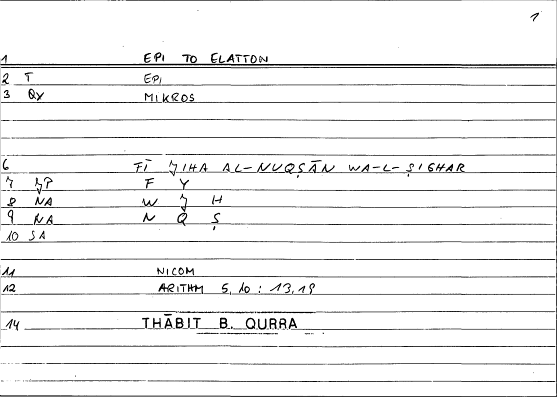 1
1 EPI TO ELATTON
2 T EPI
3 QY MIKROS
6 FĪ ǦIHA AL-NUQṢĀN WA-L-ṢIGHAR
7 F Y
8 NA W Ǧ H
9 NA N Q Ṣ
10 SA
11 NICOM
12 ARITHM 5, 10 : 13, 19
14 THĀBIT B. QURRA